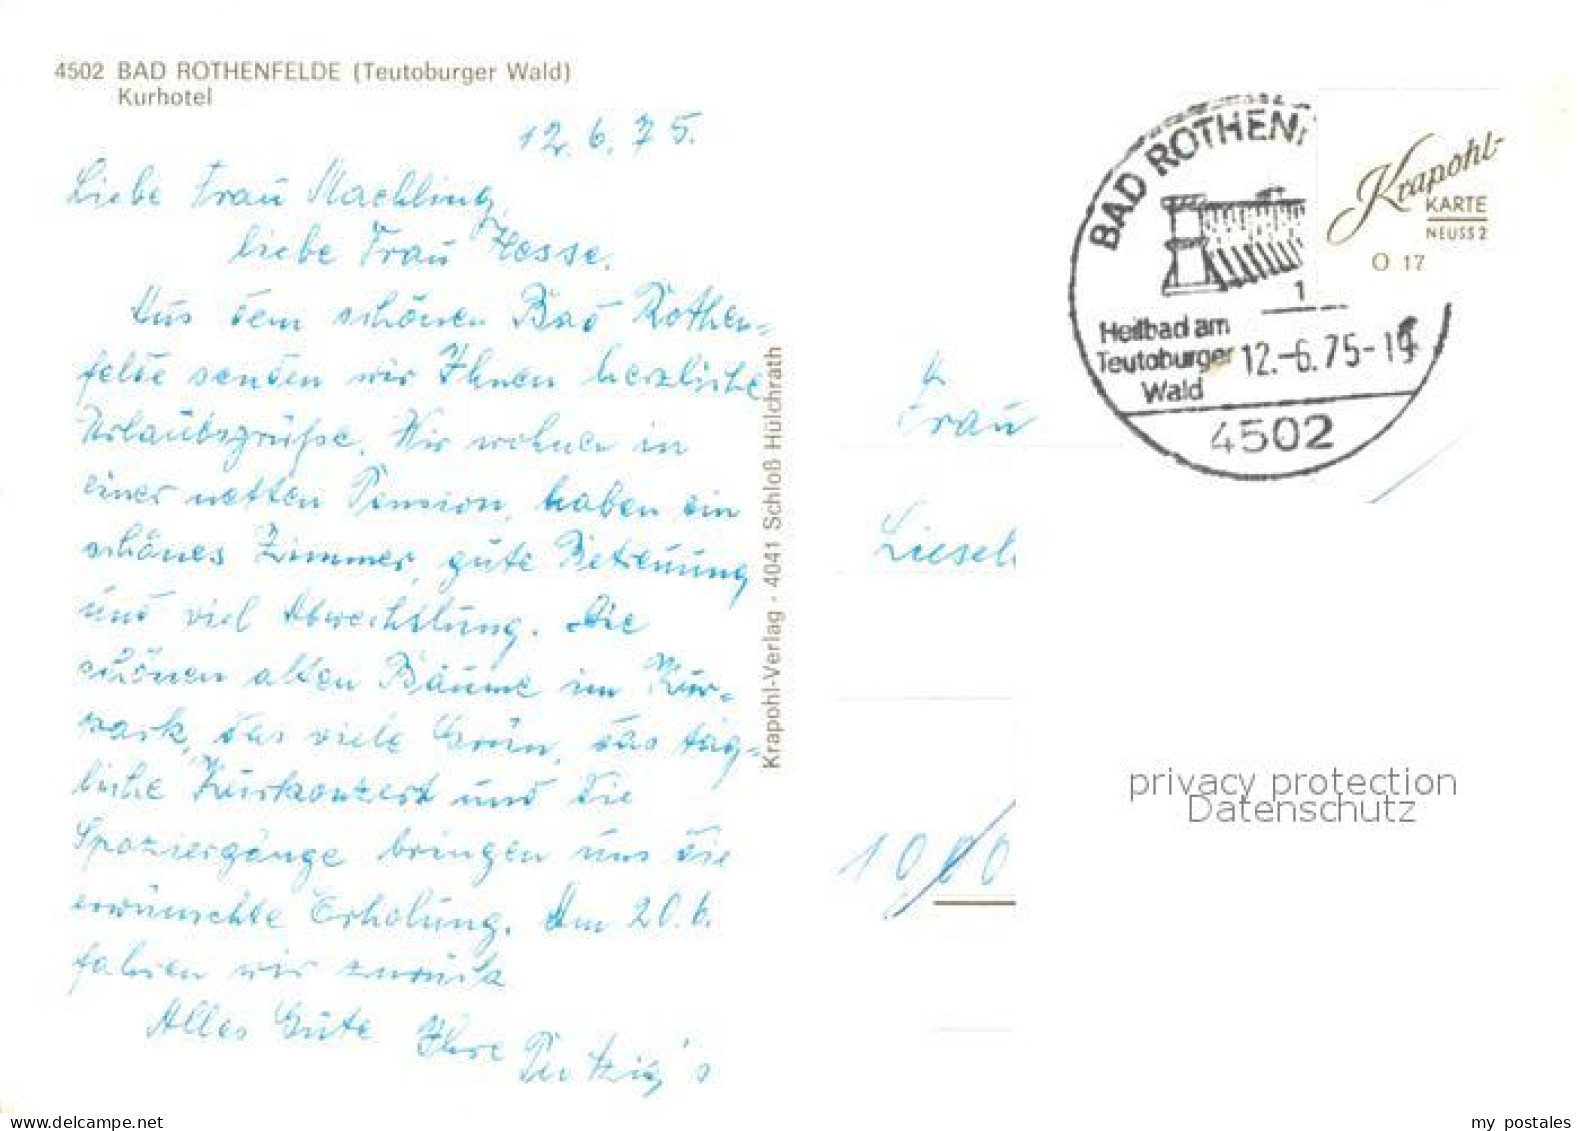 4502 BAD ROTHENFELDE (Teutoburger Wald)
Kurhotel
12.6.75.
Liebe Frau Machling,
liebe Frau Hesse.
Aus dem schönen Bad Rothen=
felde senden wir Ihnen herzliche
Urlaubsgrüße. Wir wohnen in
einer netten Pension, haben ein
schönes Zimmer, gute Betreuung
und viel Abwechslung. Die
schönen alten Bäume im Kur=
park, das viele Grün, das täg=
liche Kurkonzert und die
Spaziergänge bringen uns die
erwünschte Erholung. Am 20.6.
fahren wir zurück
Alles Gute Ihre
Krapohl-Verlag · 4041 Schloß Hülchrath
BAD ROTHENF
1
Heilbad am
Teutoburger
Wald
12.-6.75-19
4502
Krapohl-
KARTE
NEUSS 2
O 17
Frau
Liesel
1000
privacy protection
Datenschutz
my postales